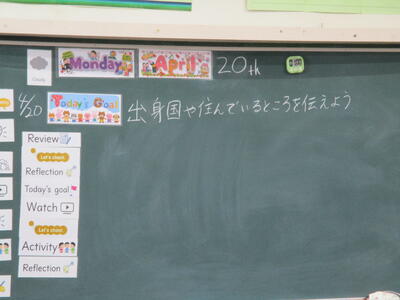 Cloudy
Monday
April
20th
4/20
Today's Goal
出身国や住んでいるところを伝えよう
Review
Let's chant.
Reflection
Today's goal
Watch
Let's chant.
Activity
Reflection